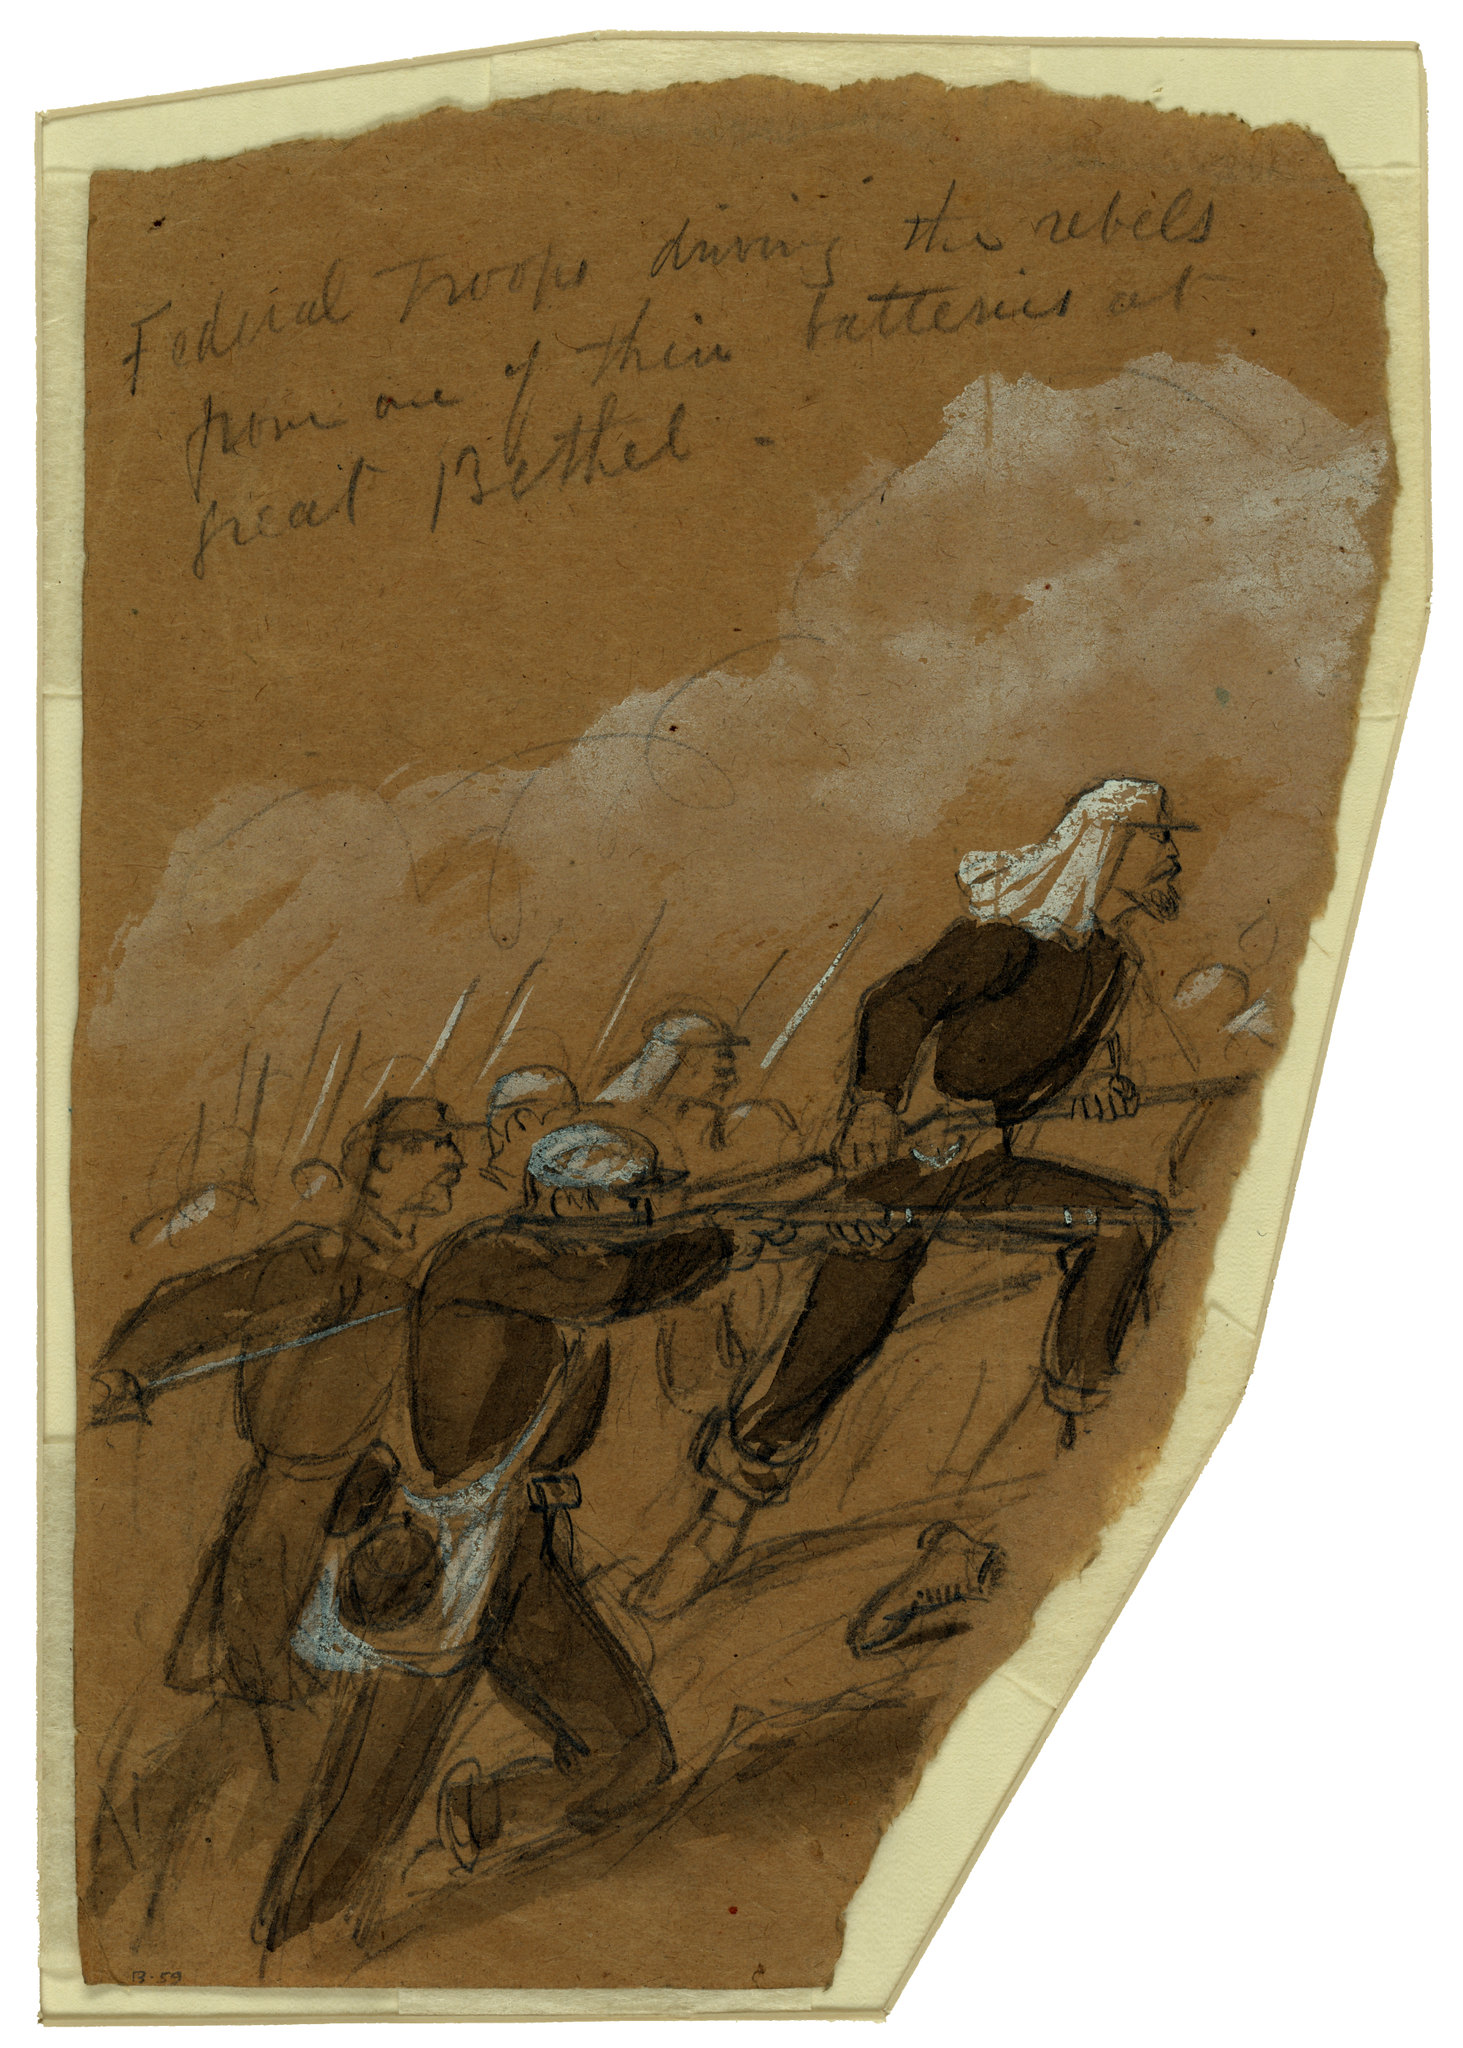 Federal troops driving the rebels
from one of their batteries at
great Bethel.
B-59